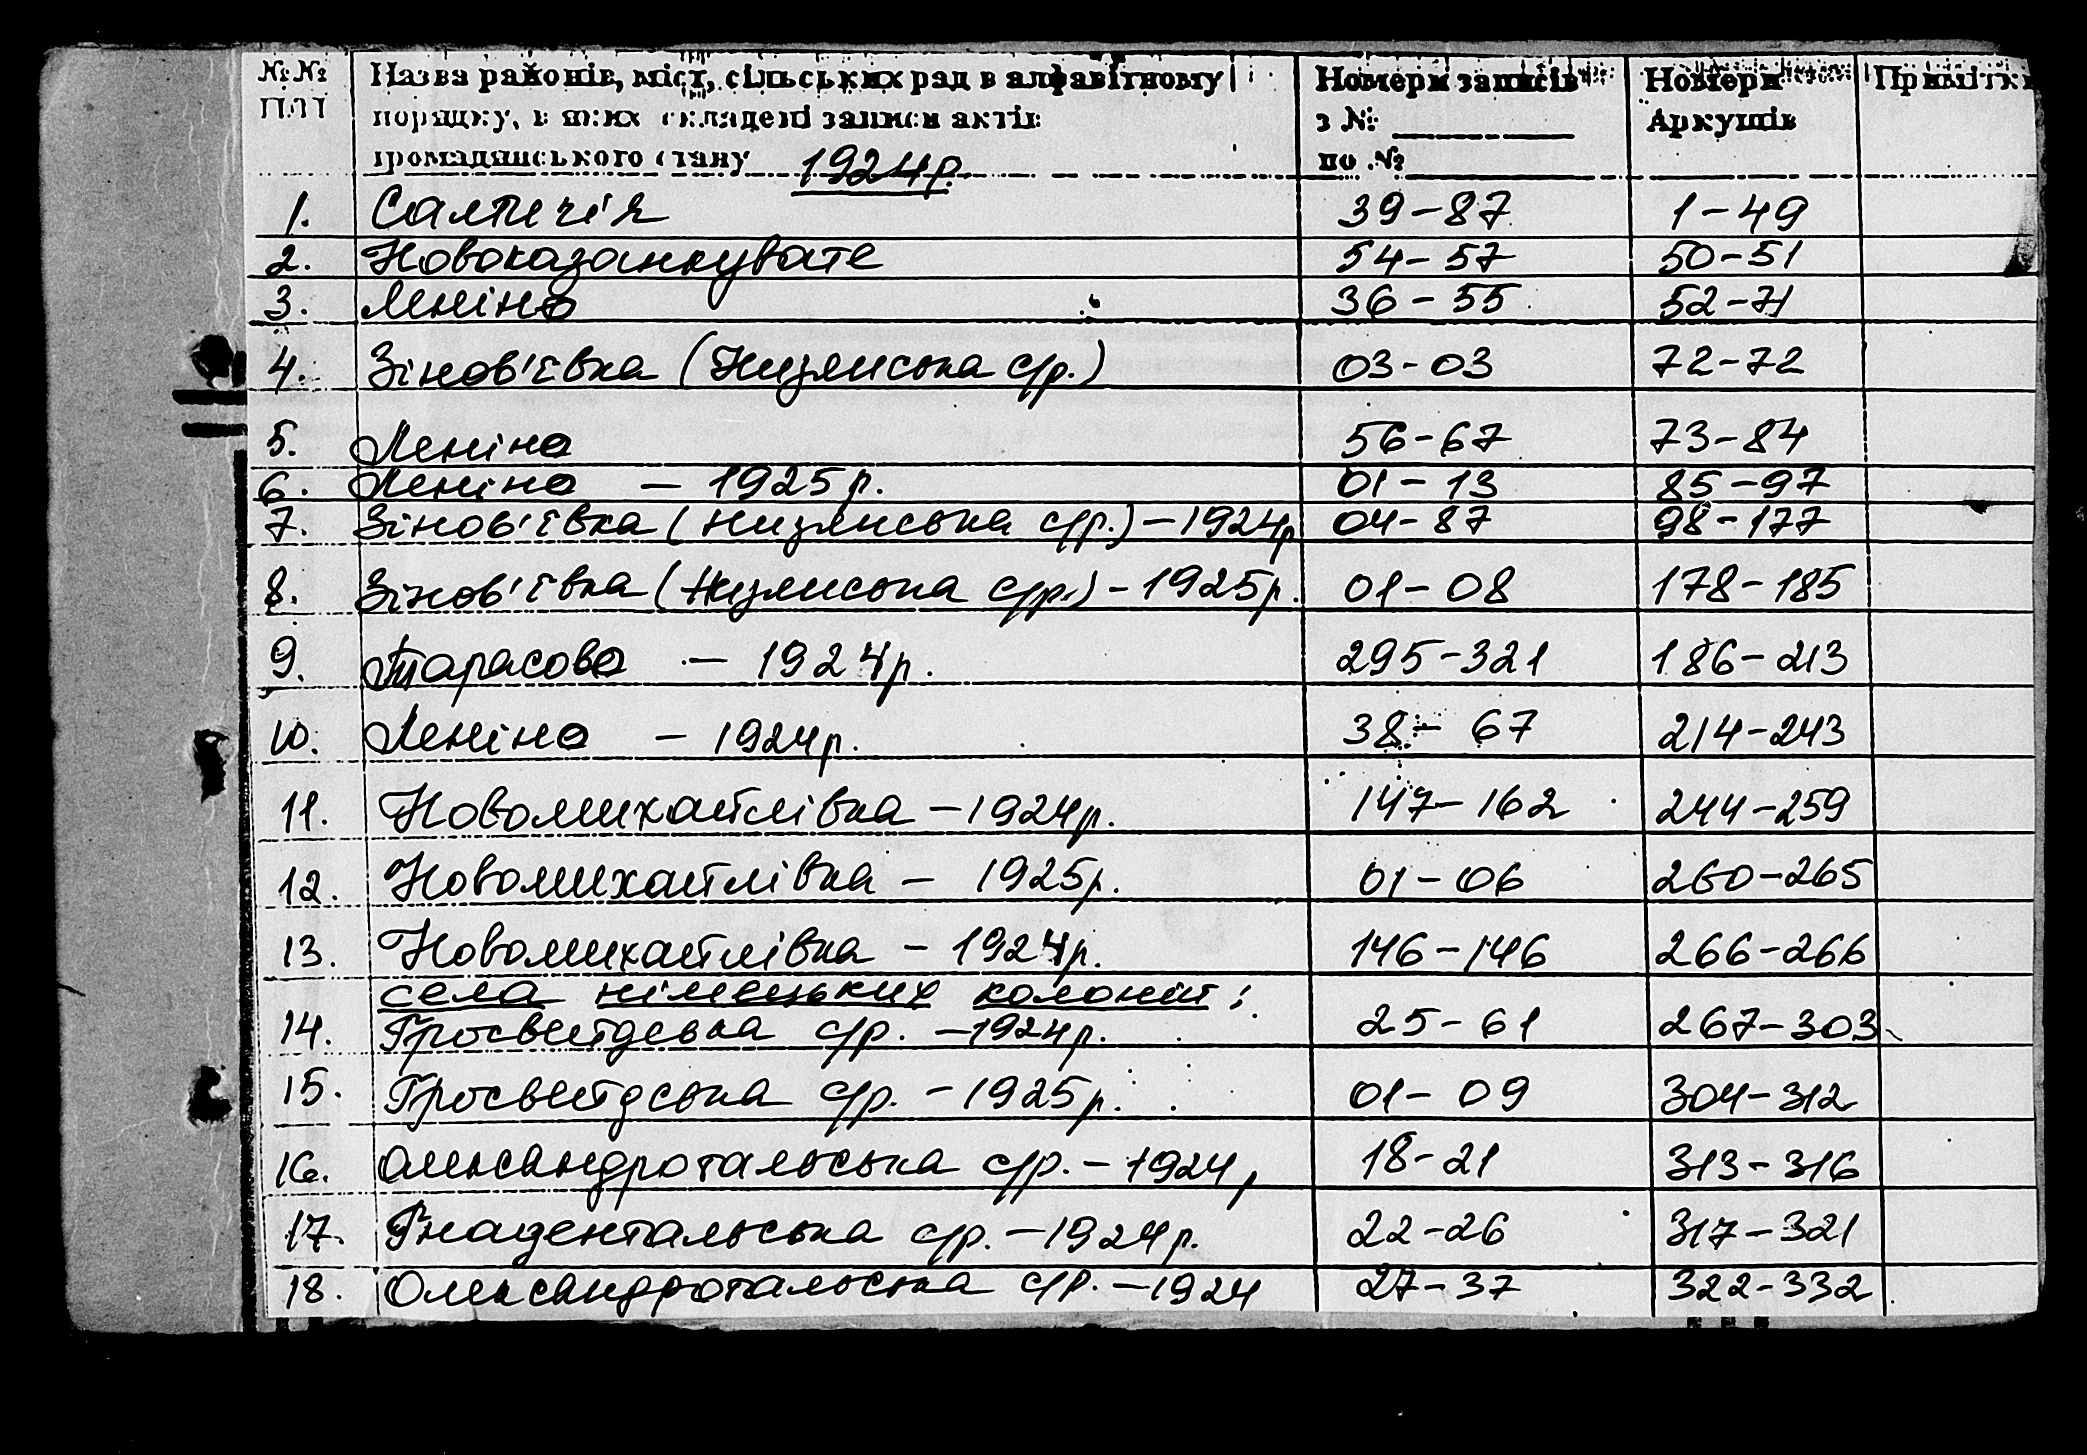 №№ Назва районів, міст, сільських рад в алфавітному Номери записів Номери Примітки
П.П порядку, в яких складені записи актів з № Аркушів
громадянського стану 1924р. по №
1. Салтичія 39-87 1-49
2. Новоказанкувате 54-57 50-51
3. Леніно 36-55 52-71
4. Зінов'ївка (Низянська с/р.) 03-03 72-72
5. Леніно 56-67 73-84
6. Леніно - 1925р. 01-13 85-97
7. Зінов'ївка (Низянська с/р.) - 1924р 04-87 98-177
8. Зінов'ївка (Низянська с/р.) - 1925р. 01-08 178-185
9. Тарасово - 1924р. 295-321 186-213
10. Леніно - 1924р. 38-67 214-243
11. Новомихайлівка - 1924р. 147-162 244-259
12. Новомихайлівка - 1925р. 01-06 260-265
13. Новомихайлівка - 1924р. 146-146 266-266
села німецьких колоній:
14. Гросвейдевка с/р. - 1924р. 25-61 267-303
15. Гросвейдська с/р. - 1925р. 01-09 304-312
16. Олександротальська с/р. - 1924р 18-21 313-316
17. Гнадентальська с/р. - 1924р. 22-26 317-321
18. Олександротальська с/р. - 1924 27-37 322-332